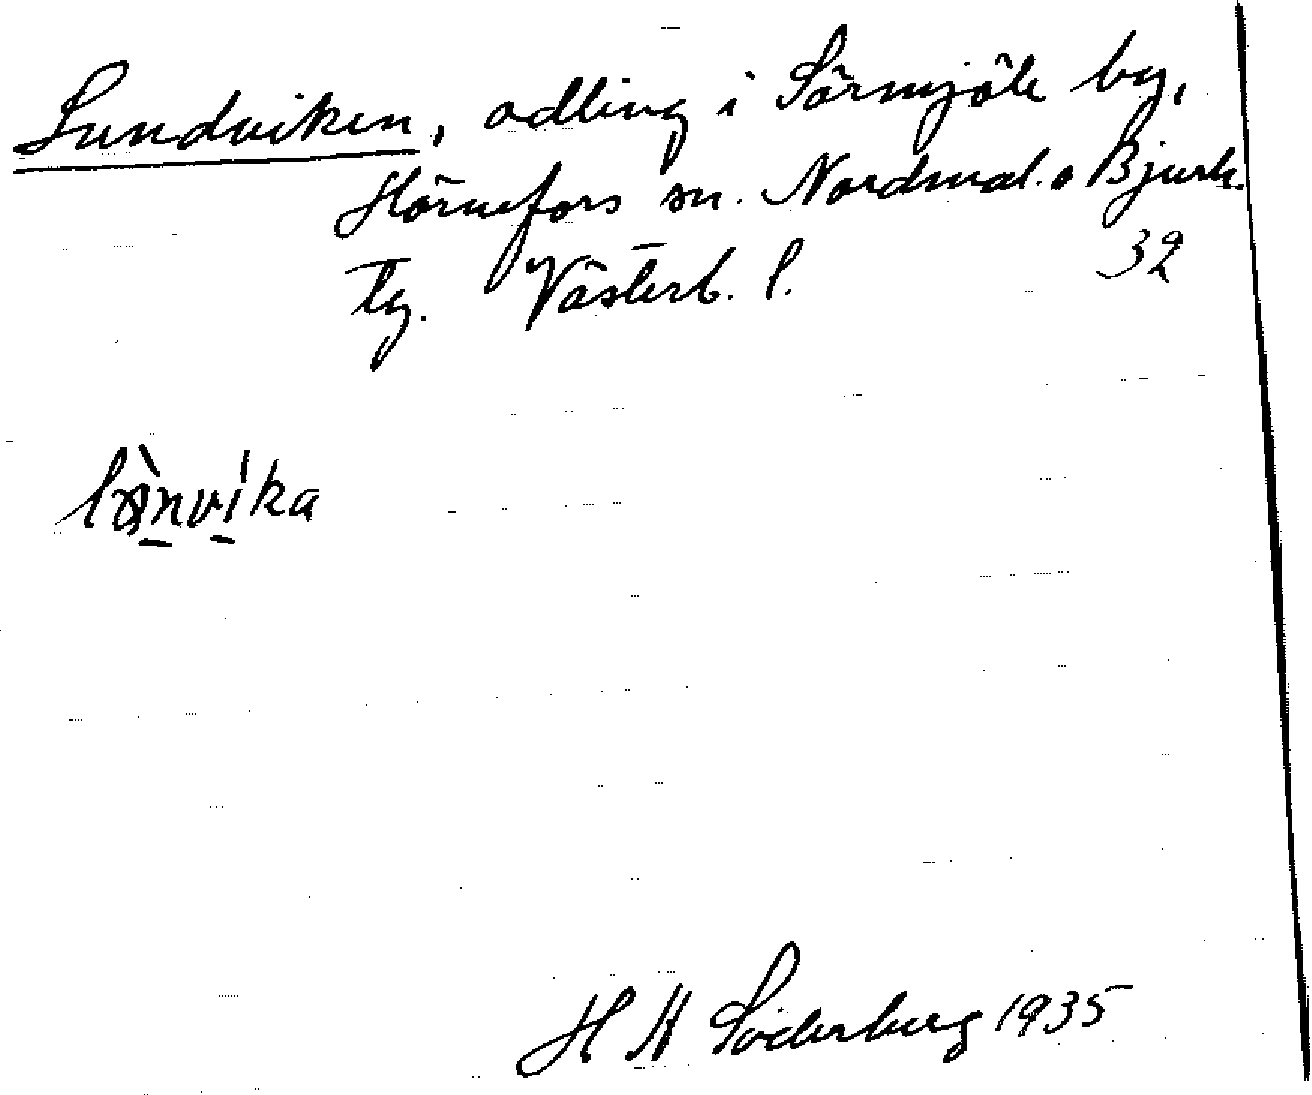 Lundviken, odling i Sörmjöle by,
Hörnefors sn. Nordmal. o Bjurh.
tg. Västerb. l. 32
H Söderberg 1935